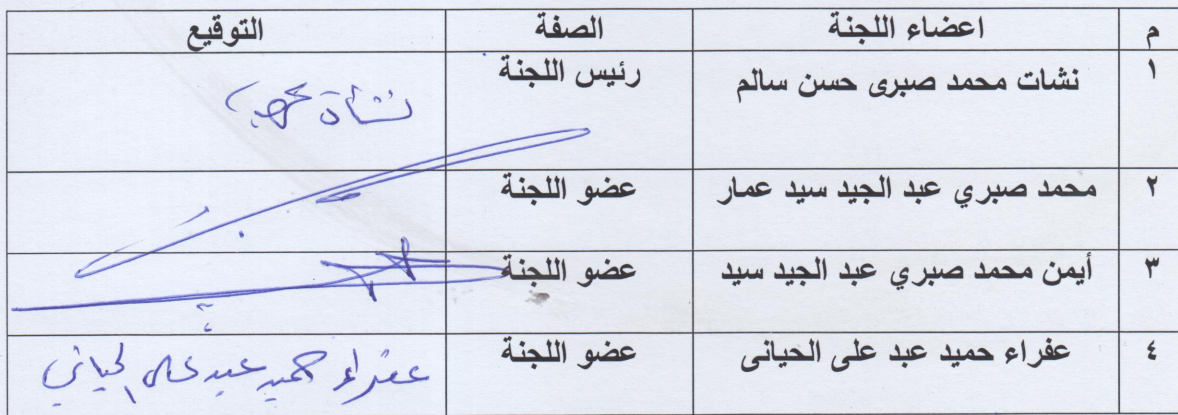 م اعضاء اللجنة الصفة التوقيع
١ نشات محمد صبرى حسن سالم رئيس اللجنة نشأة
٢ محمد صبري عبد الجيد سيد عمار عضو اللجنة
٣ أيمن محمد صبري عبد الجيد سيد عضو اللجنة
٤ عفراء حميد عبد على الحيانى عضو اللجنة عفراء حميد عبد علي الحياني